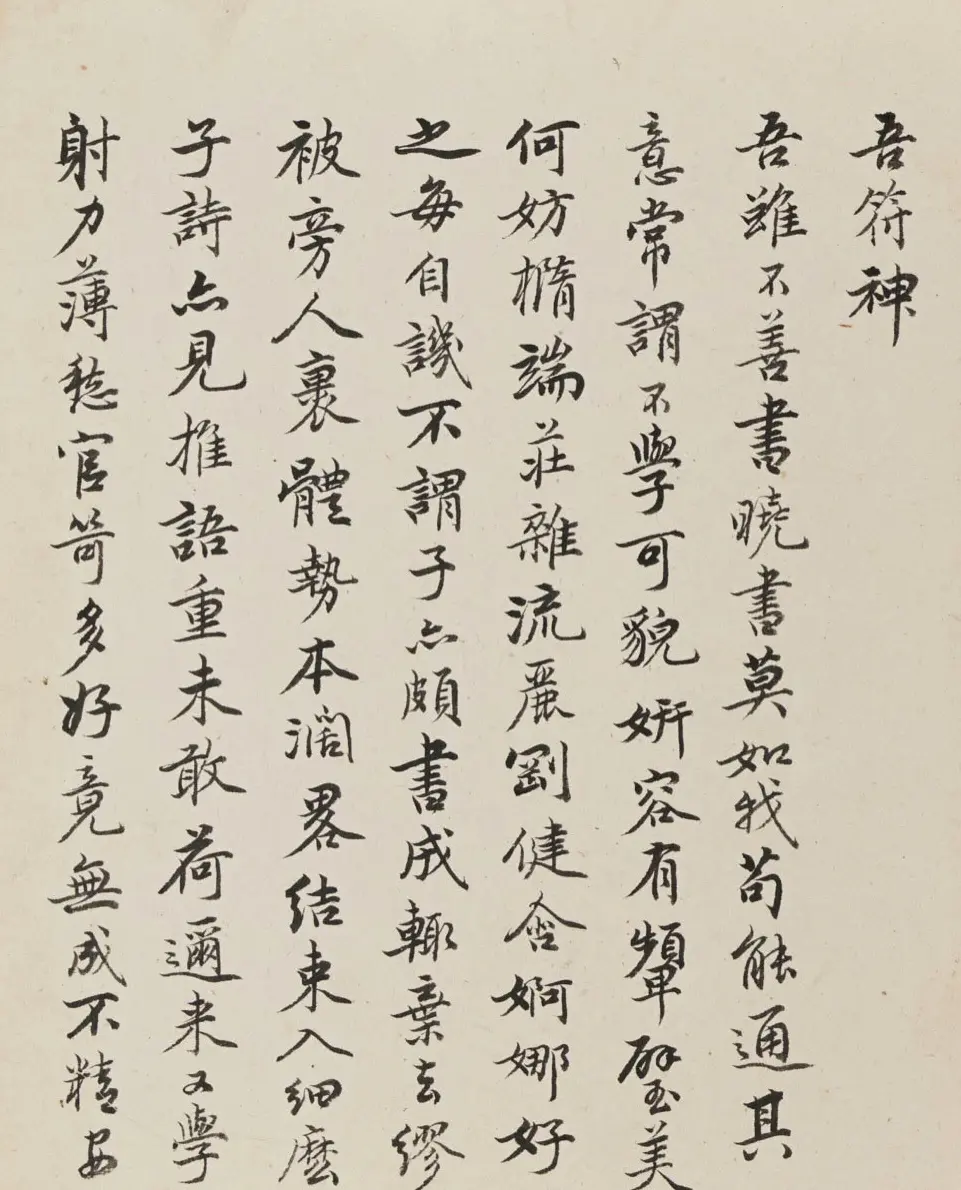 吾符神
吾雖不善書曉書莫如我苟能通其
意常謂不學可貌妍容有顰璧美
何妨橢端莊雜流麗剛健含婀娜好
之每自譏不謂子亦頗書成輒棄去繆
被旁人裹體勢本濶畧結束入細麼
子詩亦見推語重未敢荷邇来又學
射力薄愁官笴多好竟無成不精安